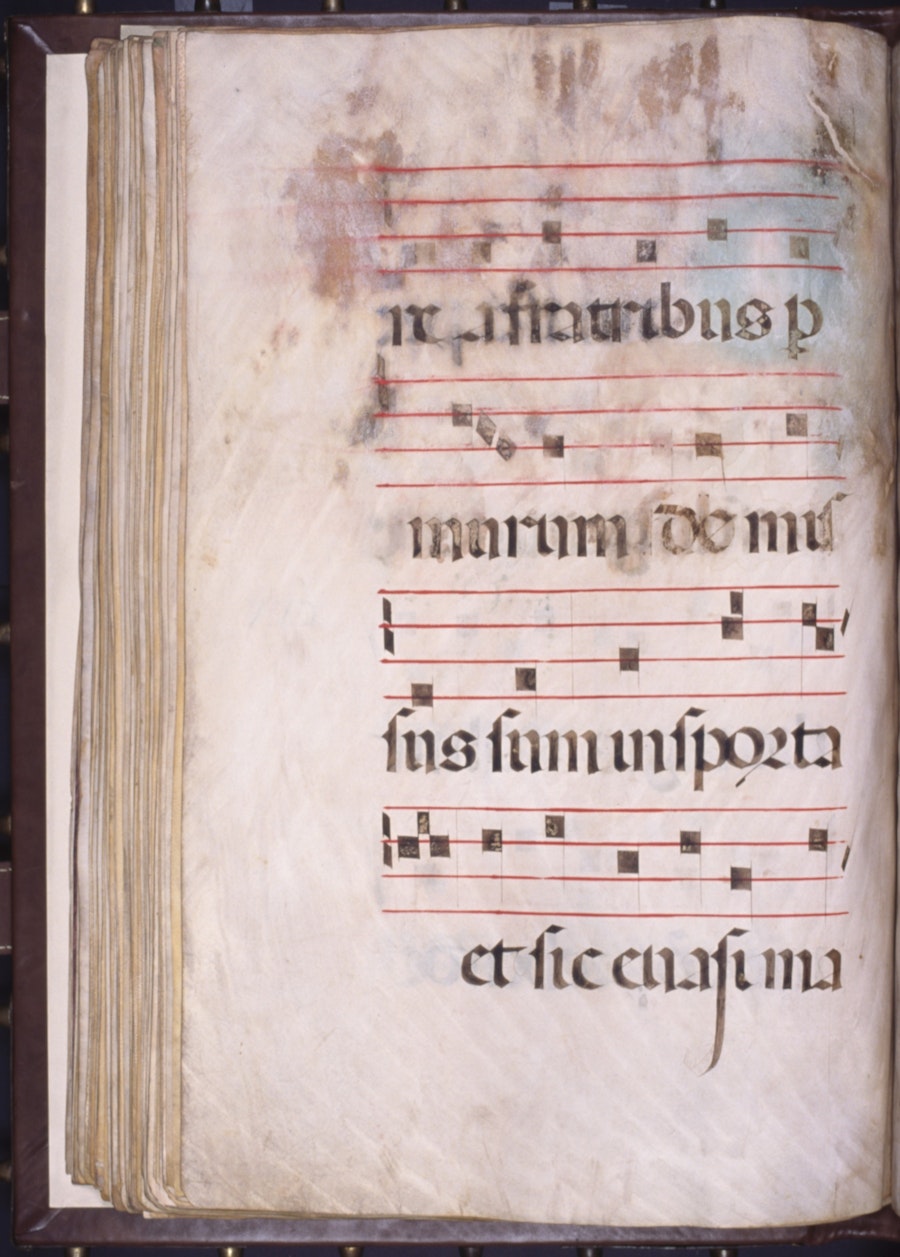 re a fratribus ꝑ
murum de mis
sus sum in sporta
et sic euasi ma